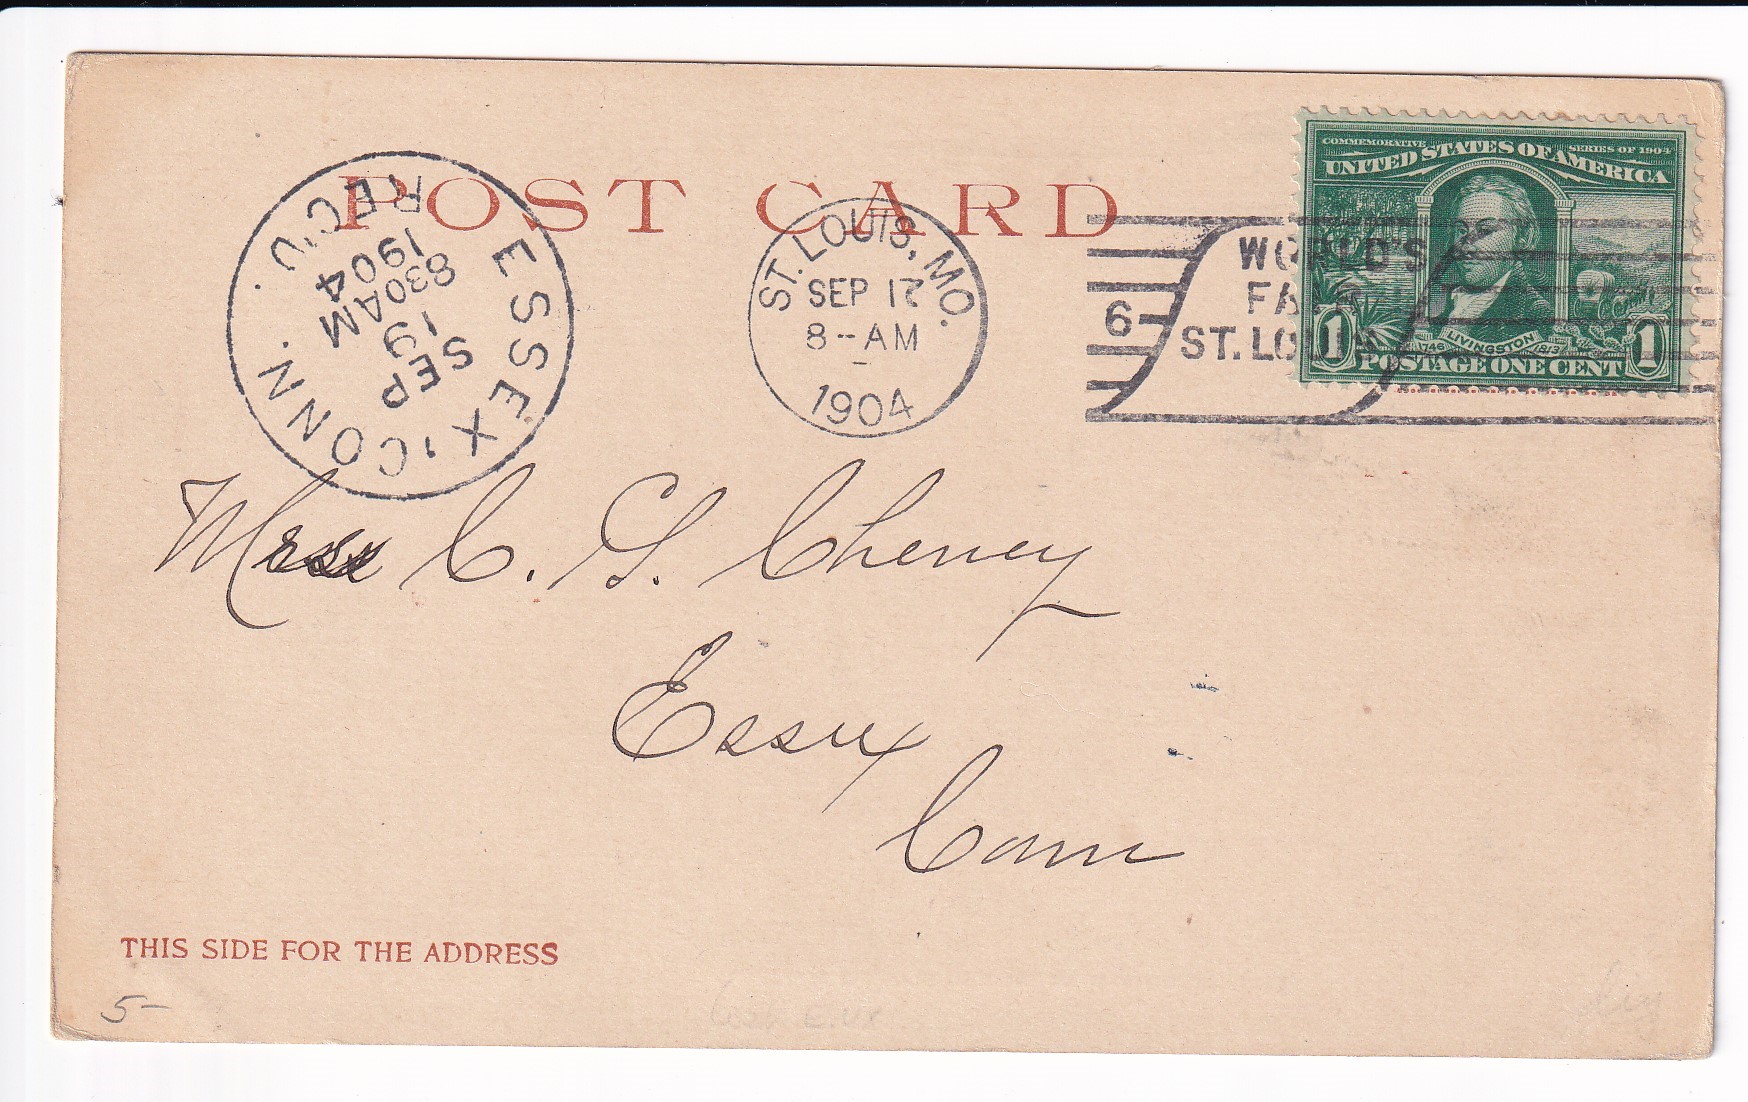 POST CARD
ESSEX, CONN.
REC'D.
SEP
19
830AM
1904
ST. LOUIS, MO.
SEP 17
8--AM
1904
6
WORLD'S
FAIR
ST. LOUIS
COMMEMORATIVE SERIES OF 1904
UNITED STATES OF AMERICA
1746 LIVINGSTON 1813
1 POSTAGE ONE CENT 1
C. S. Cheney
Essex
Conn
THIS SIDE FOR THE ADDRESS
5-